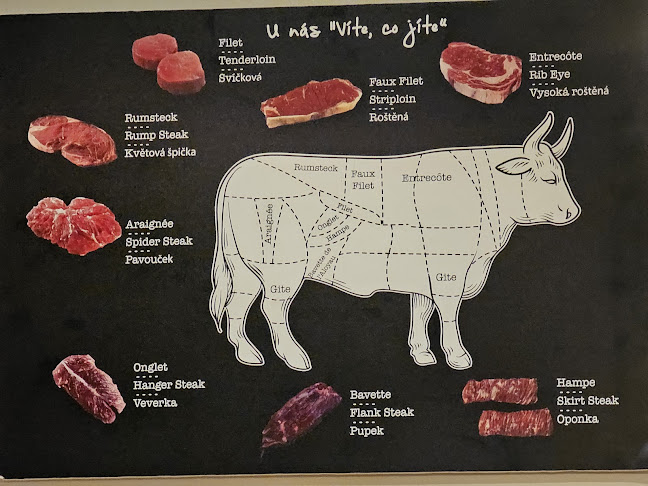 U nás "Víte, co jíte"
Filet
Tenderloin
Svíčková
Faux Filet
Striploin
Roštěná
Entrecôte
Rib Eye
Vysoká roštěná
Rumsteck
Rump Steak
Květová špička
Araignée
Spider Steak
Pavouček
Rumsteck
Faux
Filet
Entrecôte
Araignée
Filet
Onglet
Hampe
Bavette de
l'Aloyau
Gite
Gite
Onglet
Hanger Steak
Veverka
Bavette
Flank Steak
Pupek
Hampe
Skirt Steak
Oponka